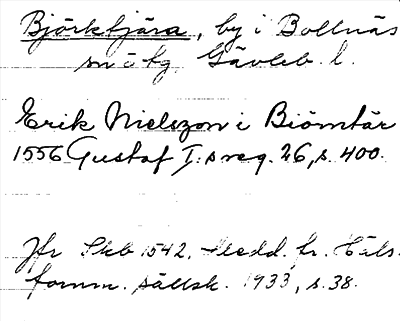 Björktjära, by i Bollnäs
sn o tg, Gävleb. l.
Erik Nielszon i Biömtär
1556 Gustaf I:s reg. 26, s. 400.
Jfr Skb 1542, Medd. fr. Häls.
fornm. sällsk. 1933, s. 38.